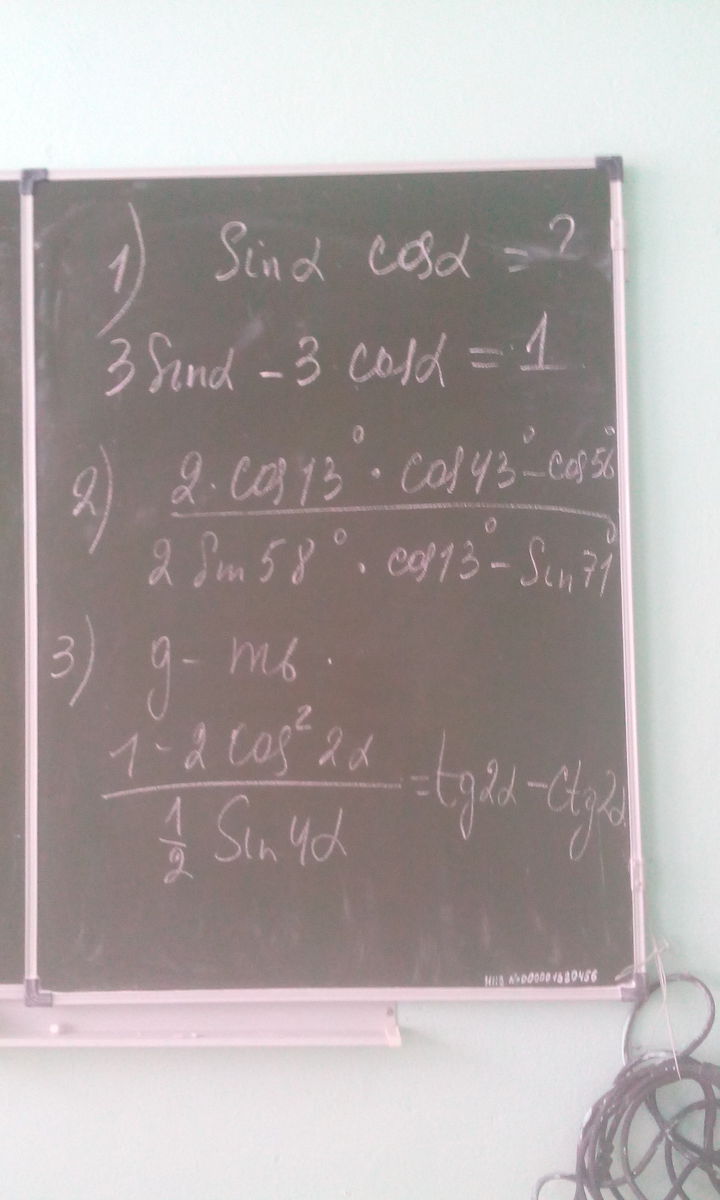 1) Sinα cosα = ?
3 Sinα - 3 cosα = 1
2) 2 · cos13° · cos43° - cos56°
2 Sin58° · cos13° - Sin71°
3) g - mb.
1 - 2 cos² 2α
1/2 Sin4α
= tg2α - ctg2α